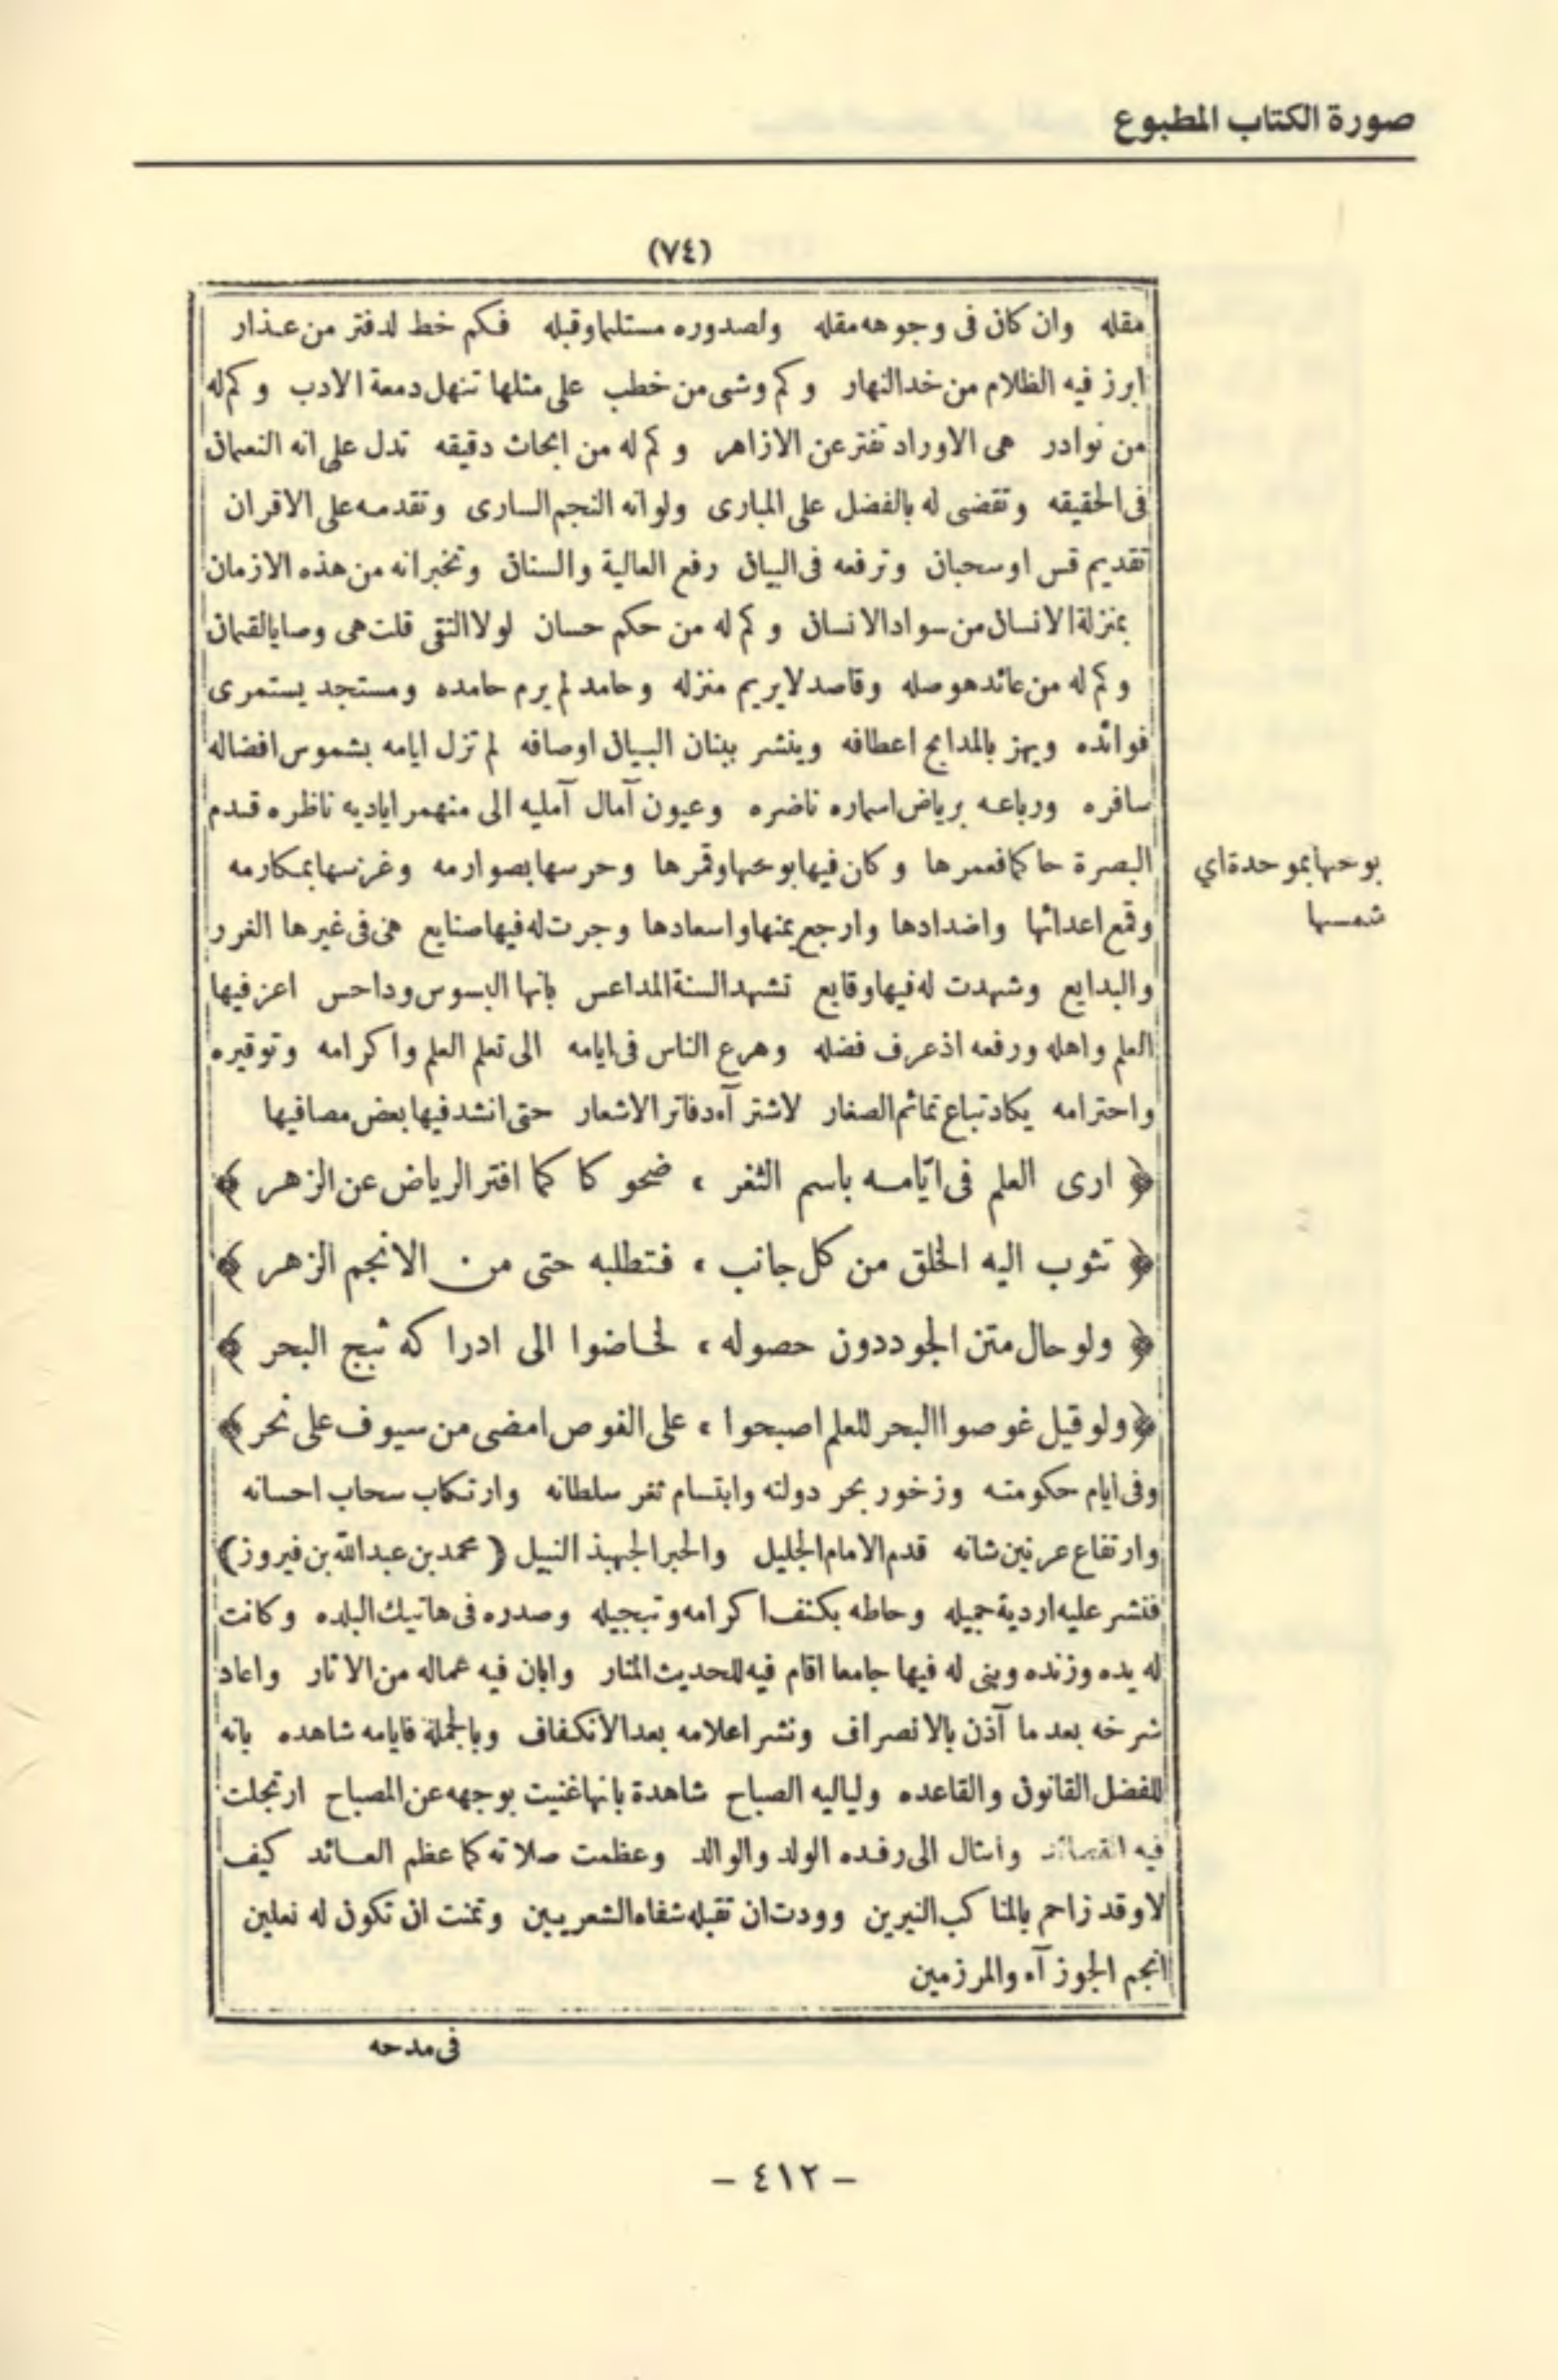 صورة الكتاب المطبوع
(٧٤)
مقله وان كان فى وجوهه مقله ولصدوره مستلما وقبله فكم خط لدفتر من عذار
ابرز فيه الظلام من خد النهار وكم وشى من خطب على مثلها تنهل دمعة الادب وكم له
من نوادر هى الاوراد تفتر عن الازاهر وكم له من ابحاث دقيقه تدل على انه النعمان
فى الحقيقه وتقضى له بالفضل على المبارى ولو انه النجم السارى وتقدمه على الاقران
تقديم قس او سحبان وترفعه فى البيان رفع العالية والسنان وتخبر انه من هذه الازمان
بمنزلة الانسان من سواد الانسان وكم له من حكم حسان لولا التقى قلت هى وصايا لقمان
وكم له من عائد هو صله وقاصد لا يريم منزله وحامد لم يرم حامده ومستجد يستمرى
فوائده ويهز بالمدايح اعطافه وينشر ببنان البيان اوصافه لم تزل ايامه بشموس افضاله
سافره ورباعه برياض اسماره ناضره وعيون آمال آمليه الى منهمر اياديه ناظره قدم
البصرة حاكما فعمرها وكان فيها بوحها وقمرها وحرسها بصوارمه وغرسها بمكارمه
بوحها بموحدة اي
شمسها
وقمع اعدائها واضدادها وارجع يمنها واسعادها وجرت له فيها صنايع هى فى غيرها الغرر
والبدايع وشهدت له فيها وقايع تشهد السنة المداعس بانها البسوس وداحس اعز فيها
العلم واهله ورفعه اذ عرف فضله وهرع الناس فى ايامه الى تعلم العلم واكرامه وتوقيره
واحترامه يكاد تباع تمائم الصغار لاشترآء دفاتر الاشعار حتى انشد فيها بعض مصافيها
﴿ ارى العلم فى ايّامه باسم الثغر ، ضحوكا كما افتر الرياض عن الزهر ﴾
﴿ تثوب اليه الخلق من كل جانب ، فتطلبه حتى من الانجم الزهر ﴾
﴿ ولو حال متن الجود دون حصوله ، لخاضوا الى ادراكه ثبج البحر ﴾
﴿ ولو قيل غوصوا البحر للعلم اصبحوا ، على الغوص امضى من سيوف على نحر ﴾
وفى ايام حكومته وزخور بحر دولته وابتسام ثغر سلطانه وارتكاب سحاب احسانه
وارتفاع عرنين شانه قدم الامام الجليل والحبر الجهبذ النبيل ( محمد بن عبد الله بن فيروز )
فنشر عليه اردية جميله وحاطه بكنف اكرامه وتبجيله وصدره فى هاتيك البلده وكانت
له يده وزنده وبنى له فيها جامعا اقام فيه للحديث المنار وابان فيه عماله من الاثار واعاد
شرخه بعد ما آذن بالانصراف ونشر اعلامه بعد الانكفاف وبالجملة فايامه شاهده بانه
للفضل القانون والقاعده ولياليه الصباح شاهدة بانها غنيت بوجهه عن المصباح ارتجلت
فيه القصائد وامثال الى رفده الولد والوالد وعظمت صلاته كما عظم العائد كيف
لا وقد زاحم بالمناكب النيرين وودت ان تقبله شفاه الشعريين وتمنت ان تكون له نعلين
انجم الجوزآء والمرزمين
فى مدحه
– ٤١٢ –